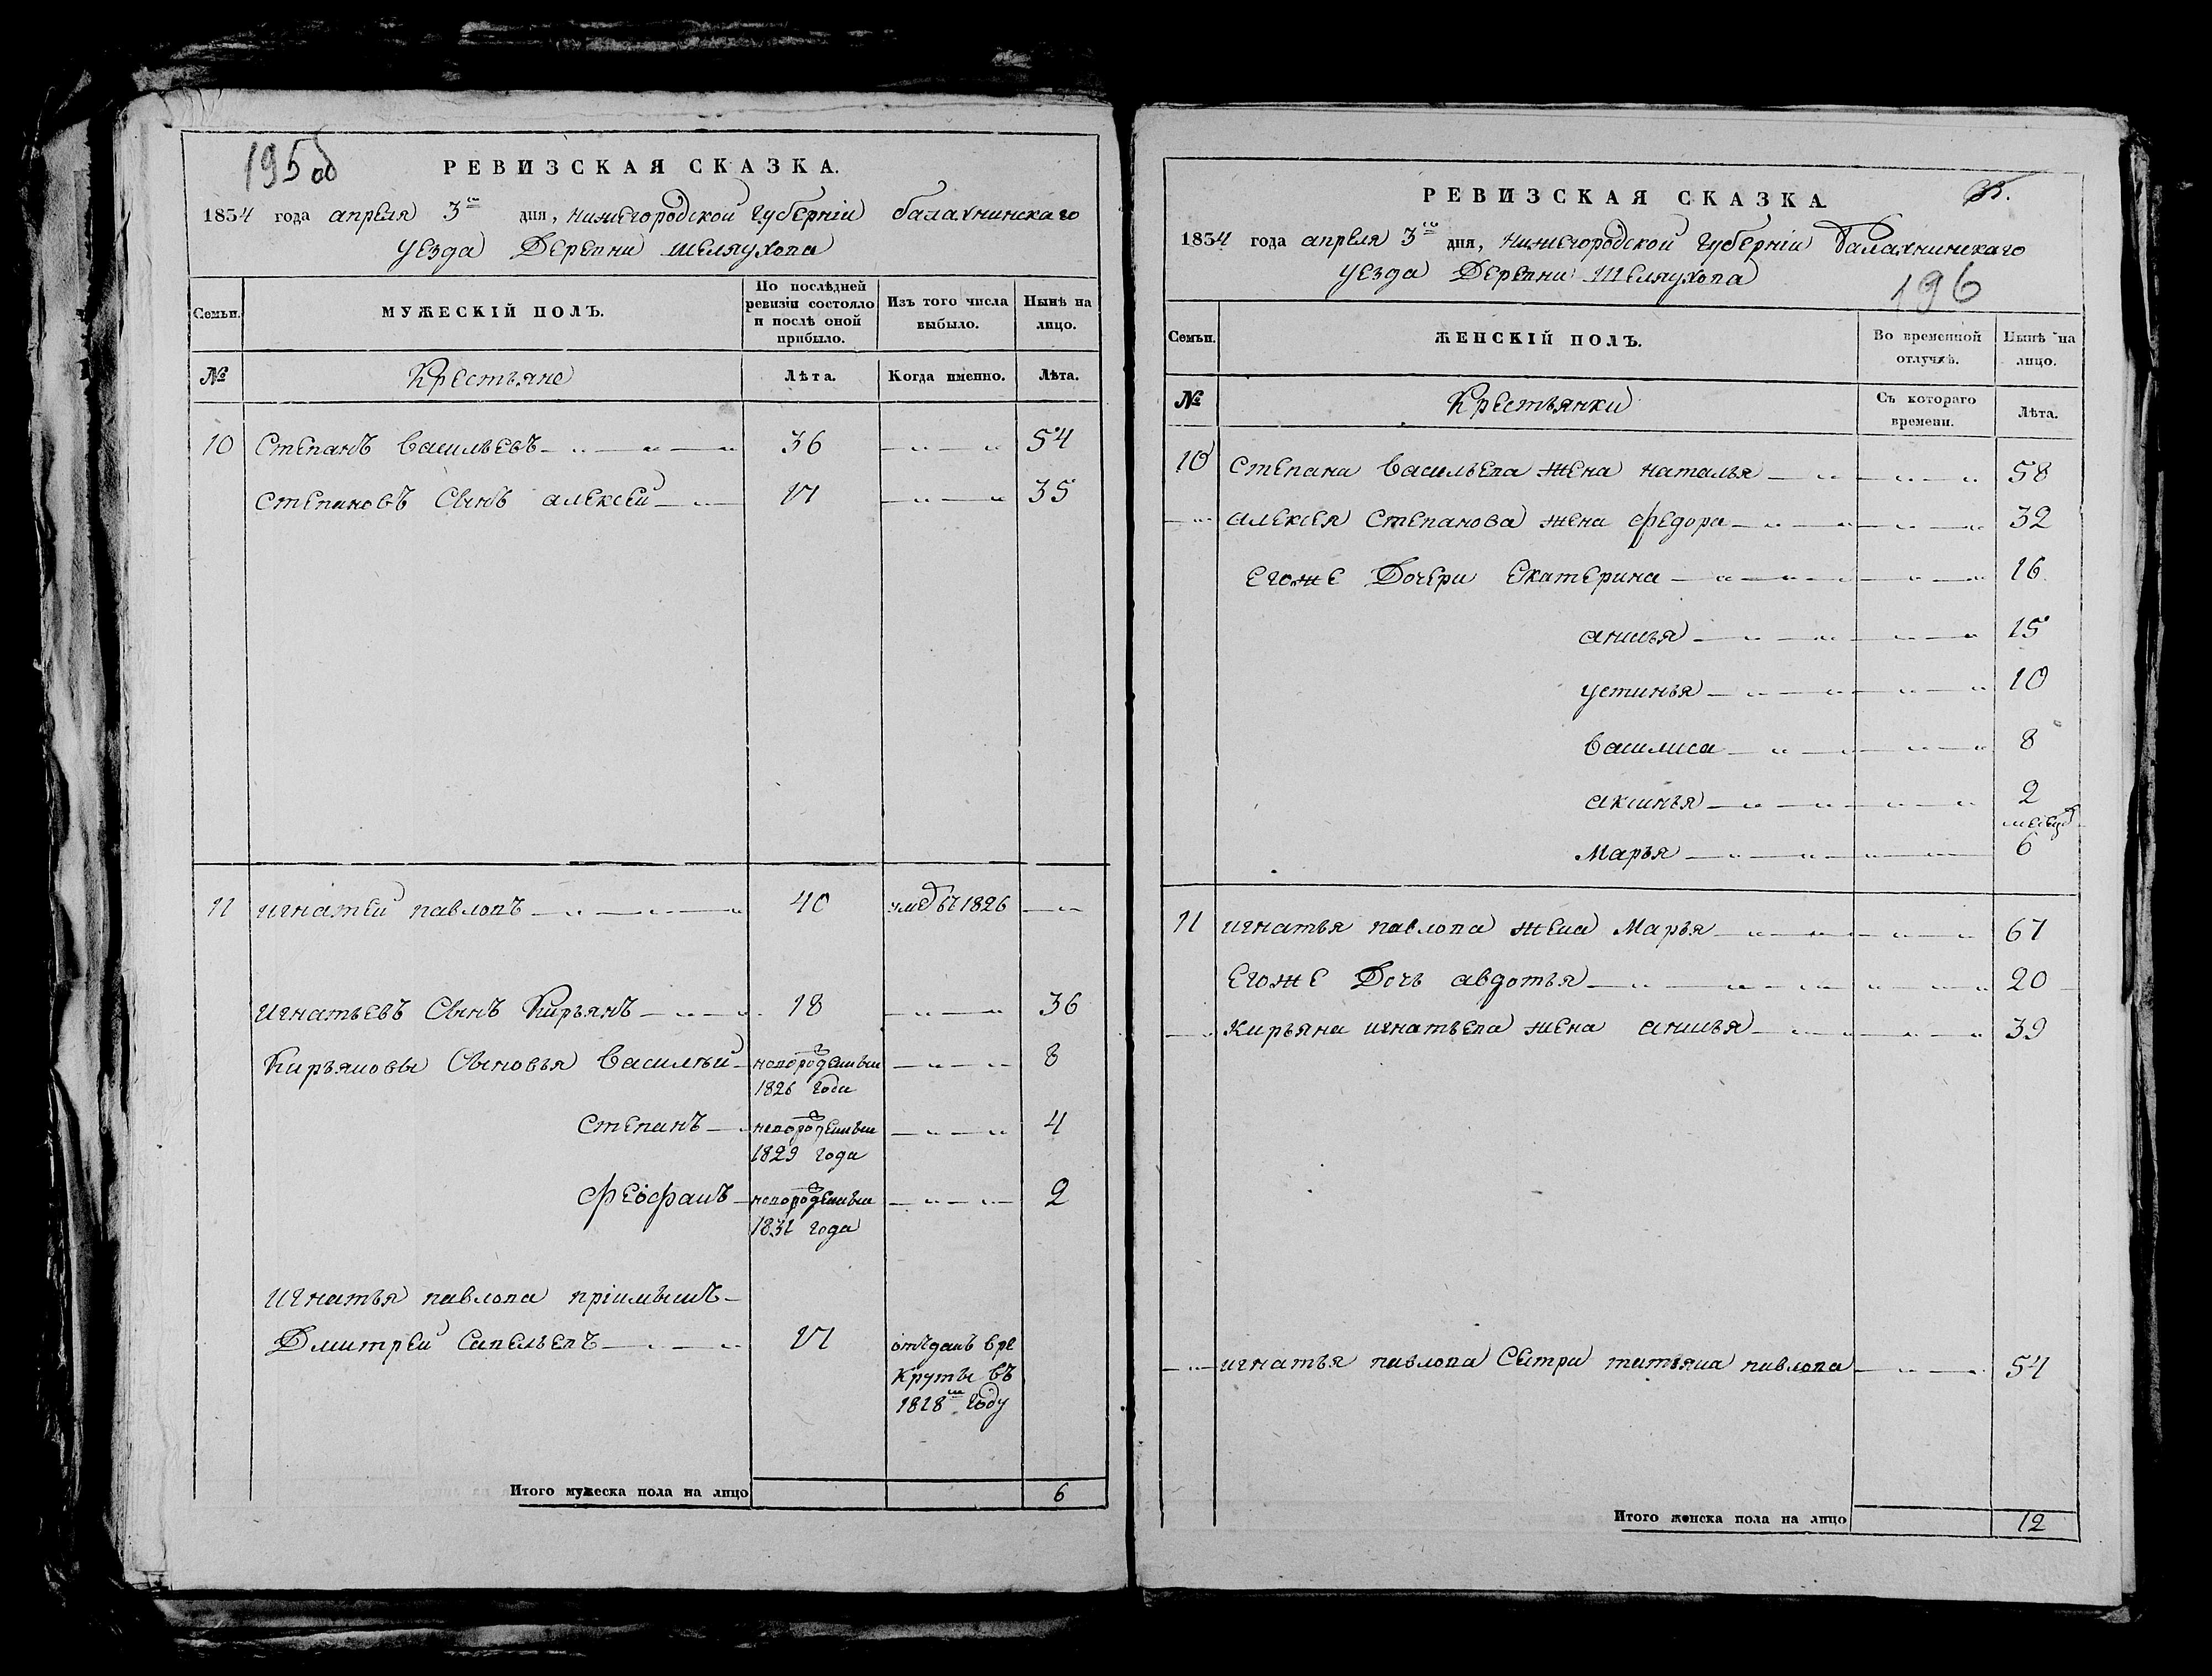 195об
РЕВИЗСКАЯ СКАЗКА.
1834 года апреля 3го дня, нижегородской губернии балахнинскаго
уезда Деревни шеляухова
Семьи.
МУЖЕСКІЙ ПОЛЪ.
По послѣдней ревизіи состояло и послѣ оной прибыло.
Изъ того числа выбыло.
Нынѣ на лицо.
№ Крестьяне Лѣта. Когда именно. Лѣта.
10 Степанъ васильевъ 36 54
Степановъ Сынъ алексей 17 35
11 игнатей павловъ 40 умре въ 1826
Игнатьевъ Сынъ Кирьянъ 18 36
Кирьяновы Сыновья василей новорожденный 8
1826 года
степанъ новорожденный 4
1829 года
феофанъ новорожденный 2
1831 года
Игнатья павлова пріимышъ
Дмитрей савельевъ 17 отъданъ вре
круты въ
1818м году
Итого мужеска пола на лицо 6
РЕВИЗСКАЯ СКАЗКА.
1834 года апреля 3го дня, нижегородской губерніи балахнинскаго
уезда Деревни Шеляухова
196
Семьи.
ЖЕНСКІЙ ПОЛЪ.
Во временной отлучкѣ.
Нынѣ на лицо.
№ Крестьянки Съ котораго времени. Лѣта.
10 Степана васильева жена наталья 58
алексея Степанова жена федора 32
Егоже Дочери Екатерина 16
анисья 15
устинья 10
василиса 8
аксинья 2
месяцъ
Марья 6
11 игнатья павлова жена Марья 67
Егоже Дочь авдотья 20
Кирьяна игнатьева жена анисья 39
игнатья павлова Сестра татяна павлова 54
Итого женска пола на лицо 12